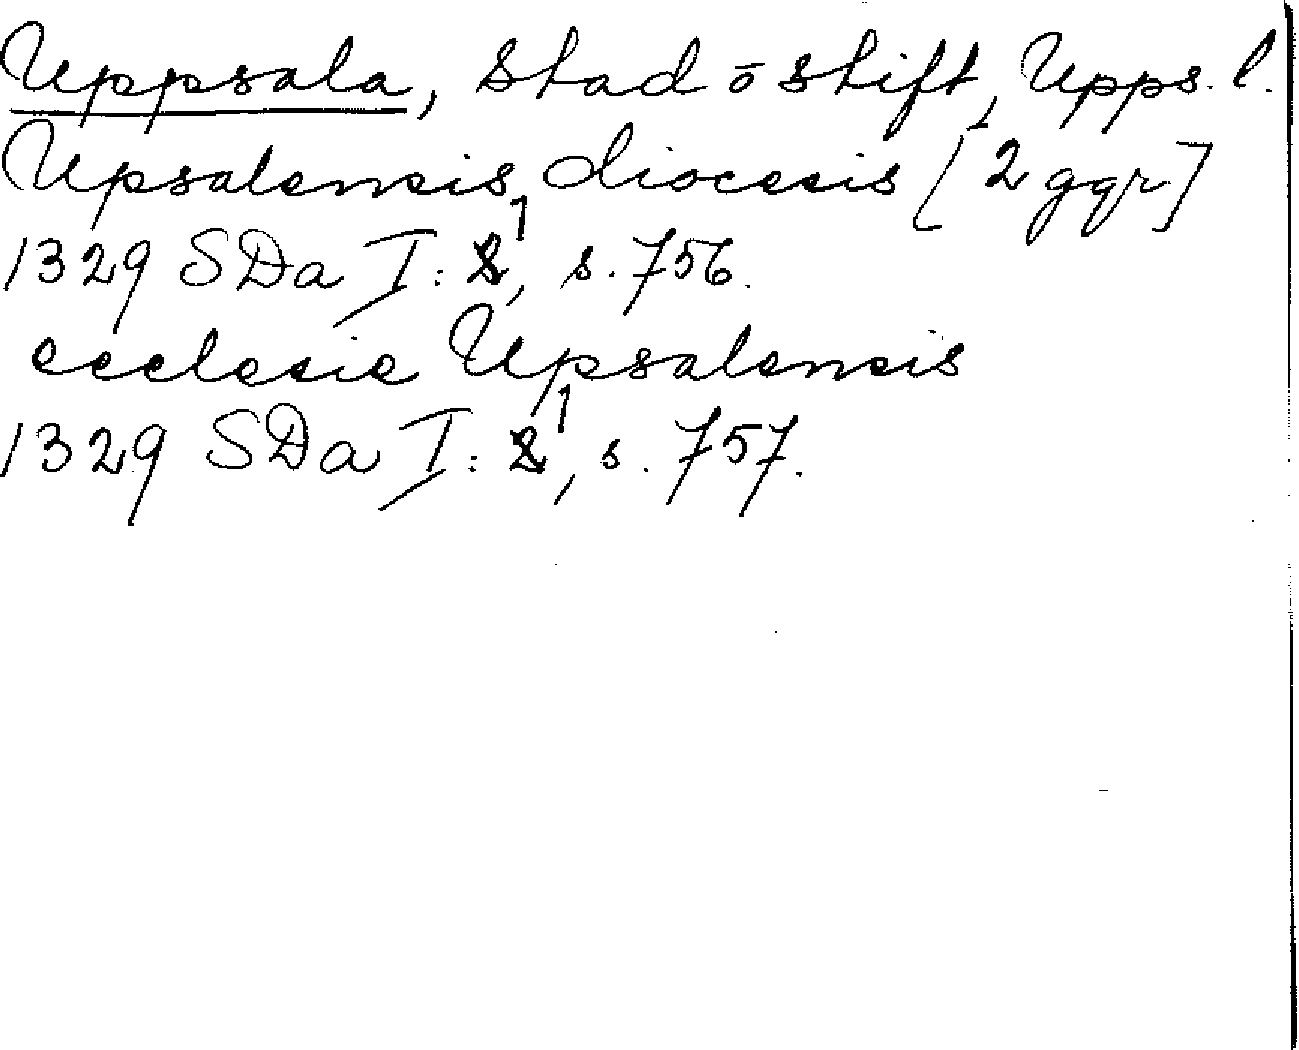 Uppsala, stad o stift, Upps. l.
Upsalensis diocesis [2 ggr]
1329 SDa I: 1, s. 756.
ecclesie Upsalensis
1329 SDa I: 1, s. 757.